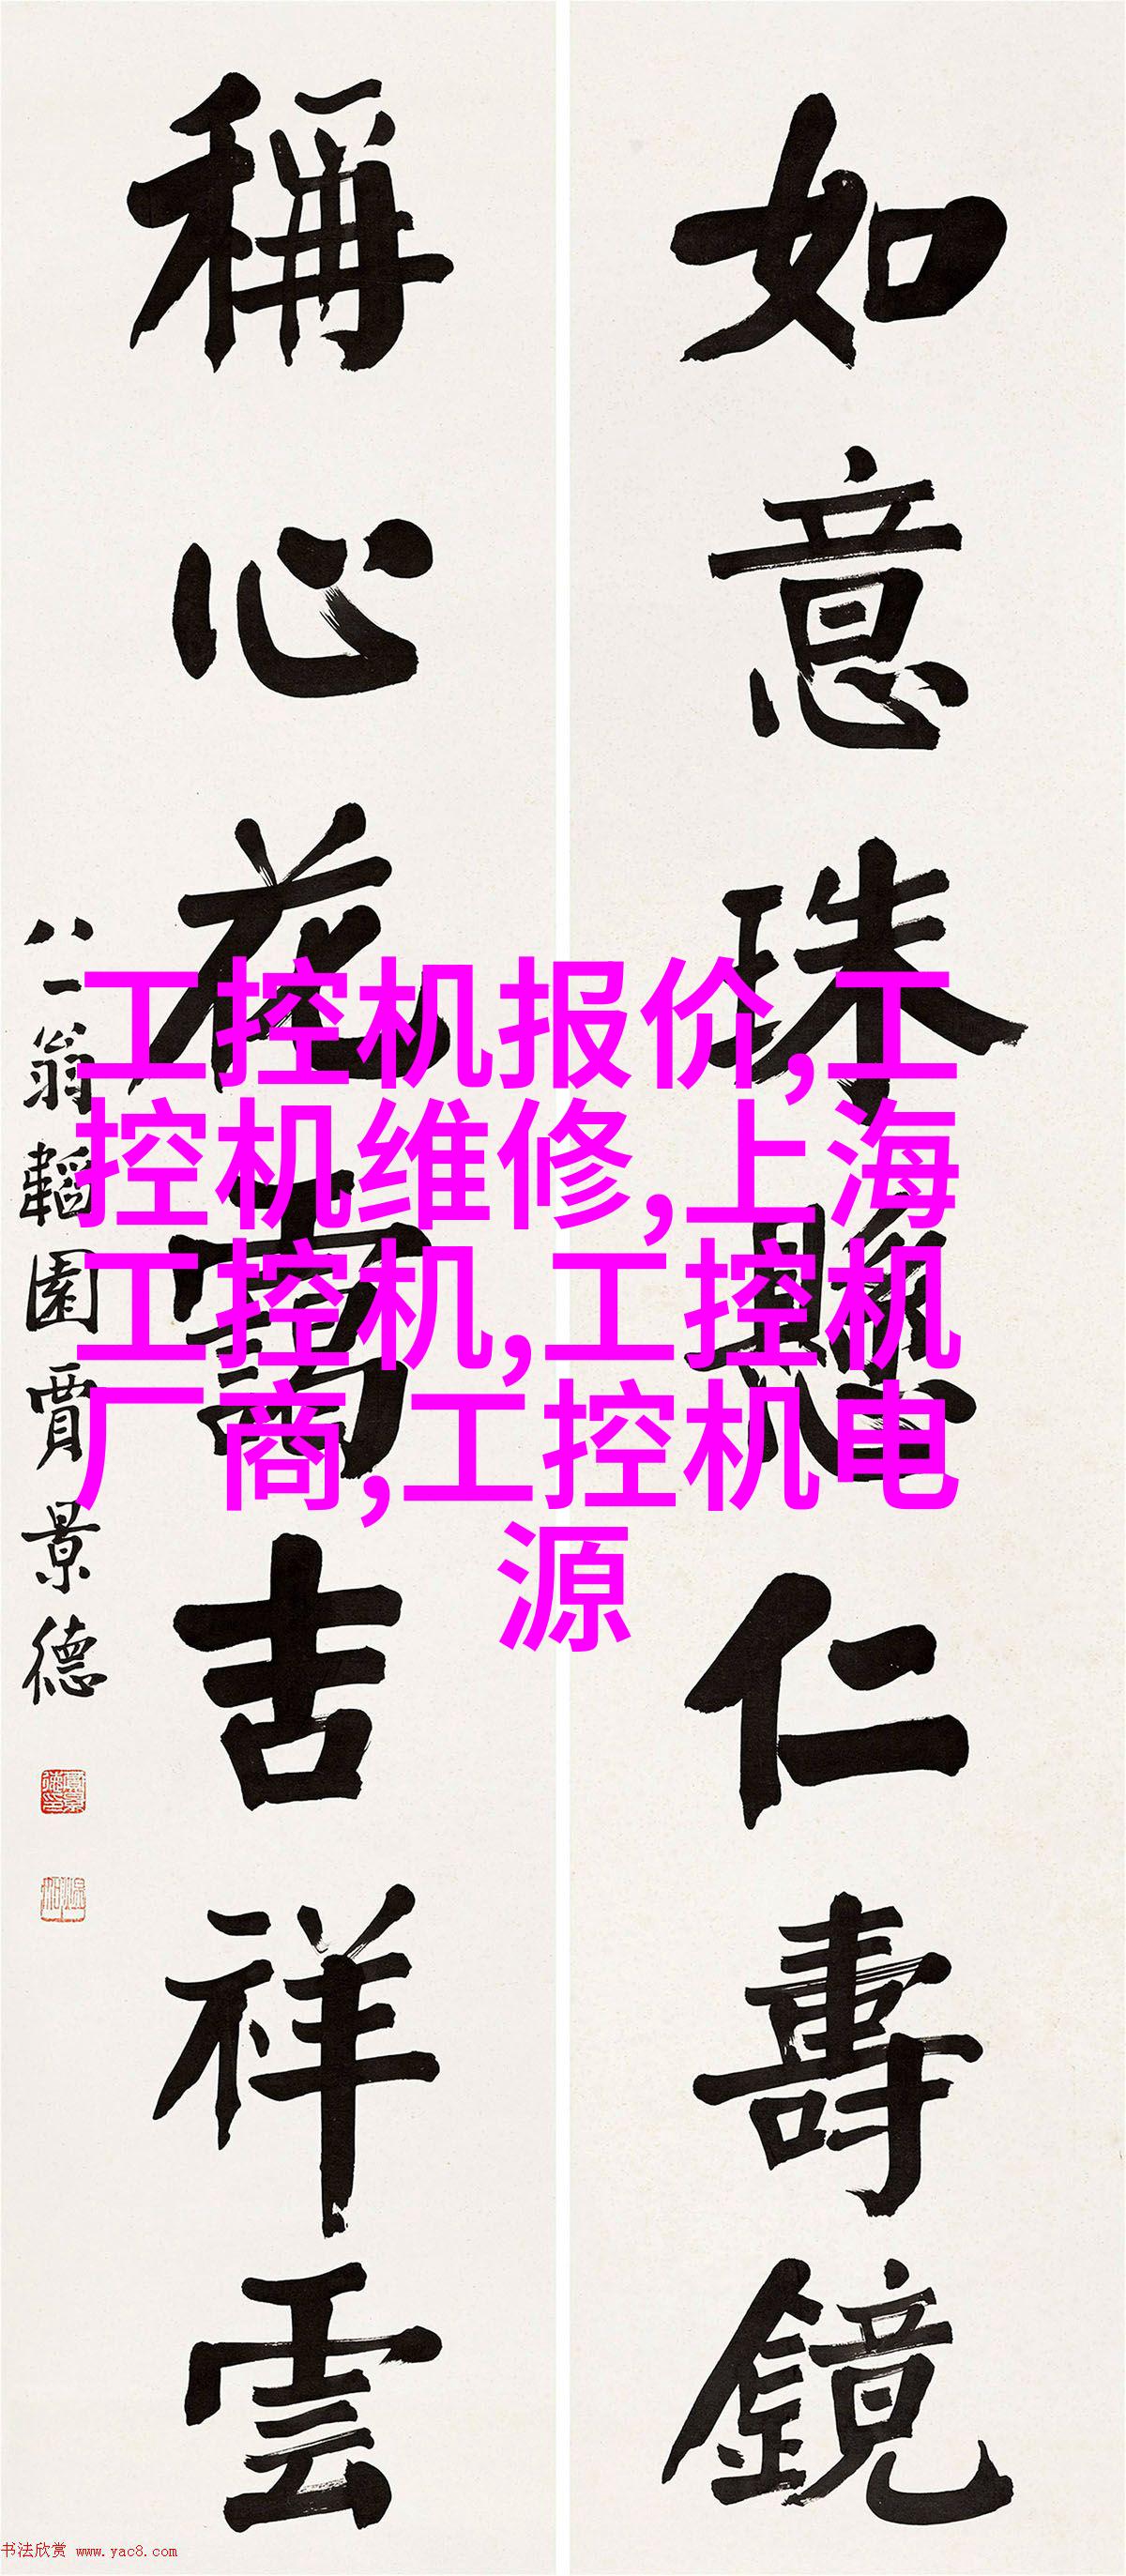 如意珠懸仁壽鏡
稱心花吉祥雲
八一翁韜園賈景德
工控机报价,工
控机维修,上海
工控机,工控机
厂商,工控机电
源
书法欣赏 www.yac8.com